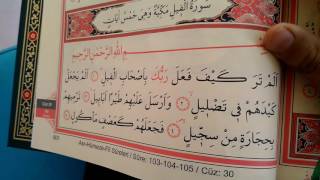 سُورَةُ الْفِيلِ مَكِّيَّةٌ وَهِيَ خَمْسُ اٰيَاتٍ
بِسْمِ اللّٰهِ الرَّحْمٰنِ الرَّحِيمِ
اَلَمْ تَرَ كَيْفَ فَعَلَ رَبُّكَ بِاَصْحَابِ الْفِيلِ ١ اَلَمْ يَجْعَلْ
كَيْدَهُمْ فِى تَضْلِيلٍ ٢ وَاَرْسَلَ عَلَيْهِمْ طَيْرًا اَبَابِيلَ ٣ تَرْمِيهِمْ
بِحِجَارَةٍ مِنْ سِجِّيلٍ ٤ فَجَعَلَهُمْ كَعَصْفٍ مَأْكُولٍ
Asr-Hümeze-Fil Sûreleri / Sûre: 103-104-105 / Cüz: 30